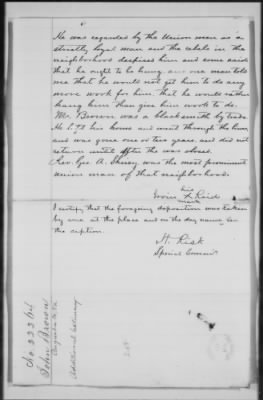 He was regarded by the Union men as a
strictly loyal man and the rebels in the
neighborhood despised him and some said
that he ought to be hung, and one man told
me that he would not get him to do any
more work for him that he would rather
hang him than give him work to do.
Mr. Brown was a blacksmith by trade
He left his home and went through the lines
and was gone one or two years and did not
return until after the war closed.
Rev. Geo. A. Shuey was the most prominent
Union man of that neighborhood.
his
Irvin X Reid
mark
I certify that the foregoing deposition was taken
by me at the place and on the day named in
the caption.
H. Risk
Special Commr
No. 333
John Brown
Augusta Co. Va.
Additional testimony